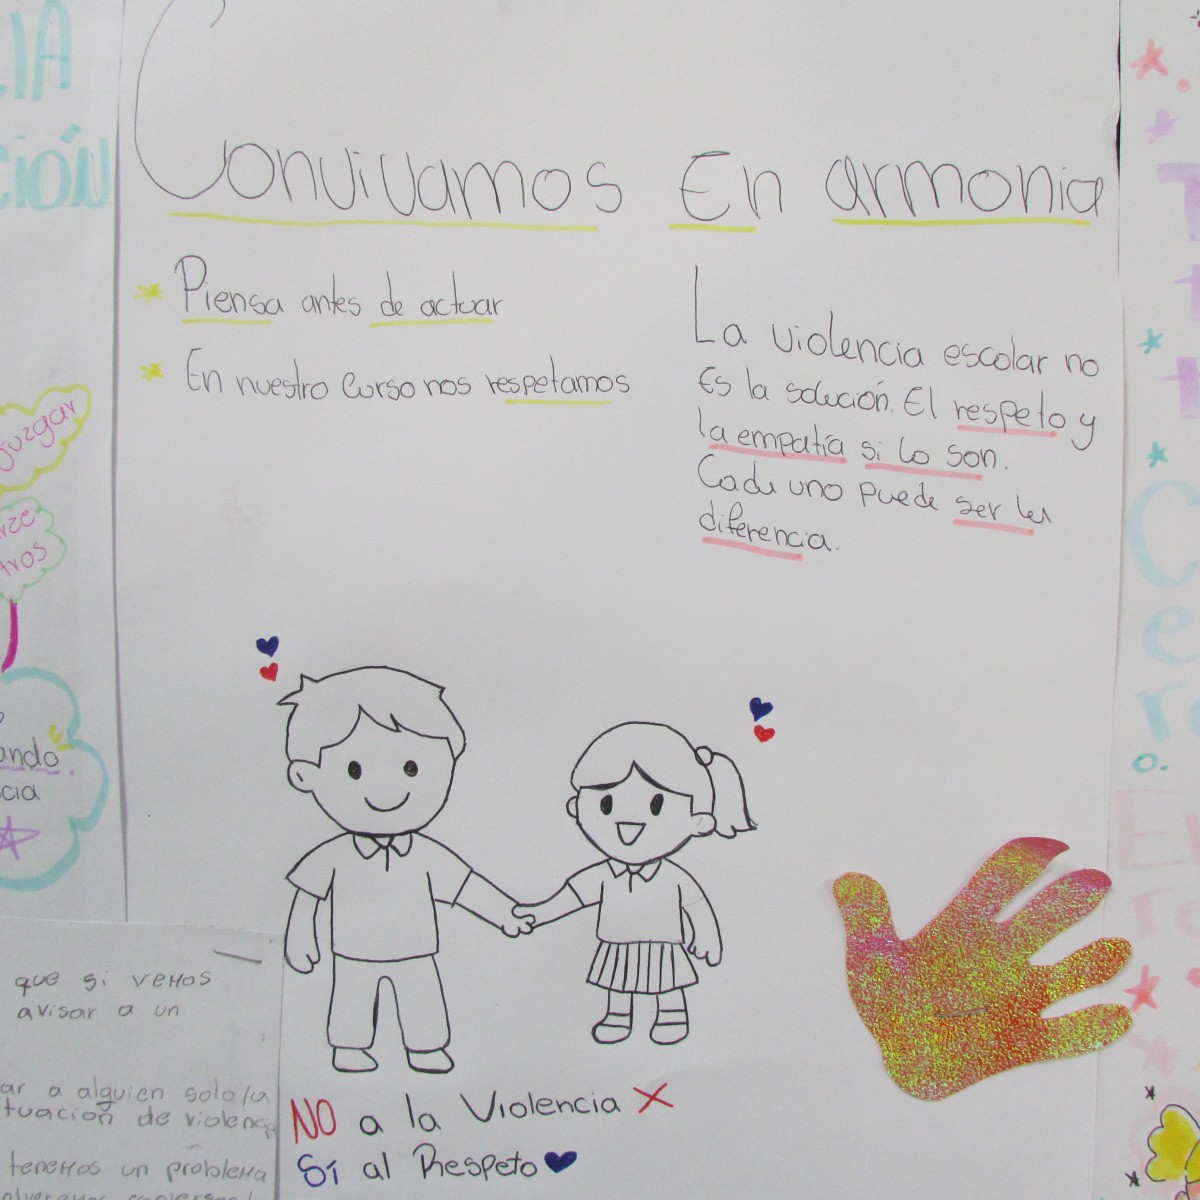 Convivamos En armonia
Piensa antes de actuar
En nuestro Curso nos respetamos
La violencia escolar no
Es la solución. El respeto y
la empatía si lo son.
Cada uno puede ser la
diferencia.
NO a la Violencia X
Sí al Respeto
CIÓN
Juzgar
ando.
que si vemos
avisar a un
ar a alguien solo/a
tuación de violencia
tenemos un problema